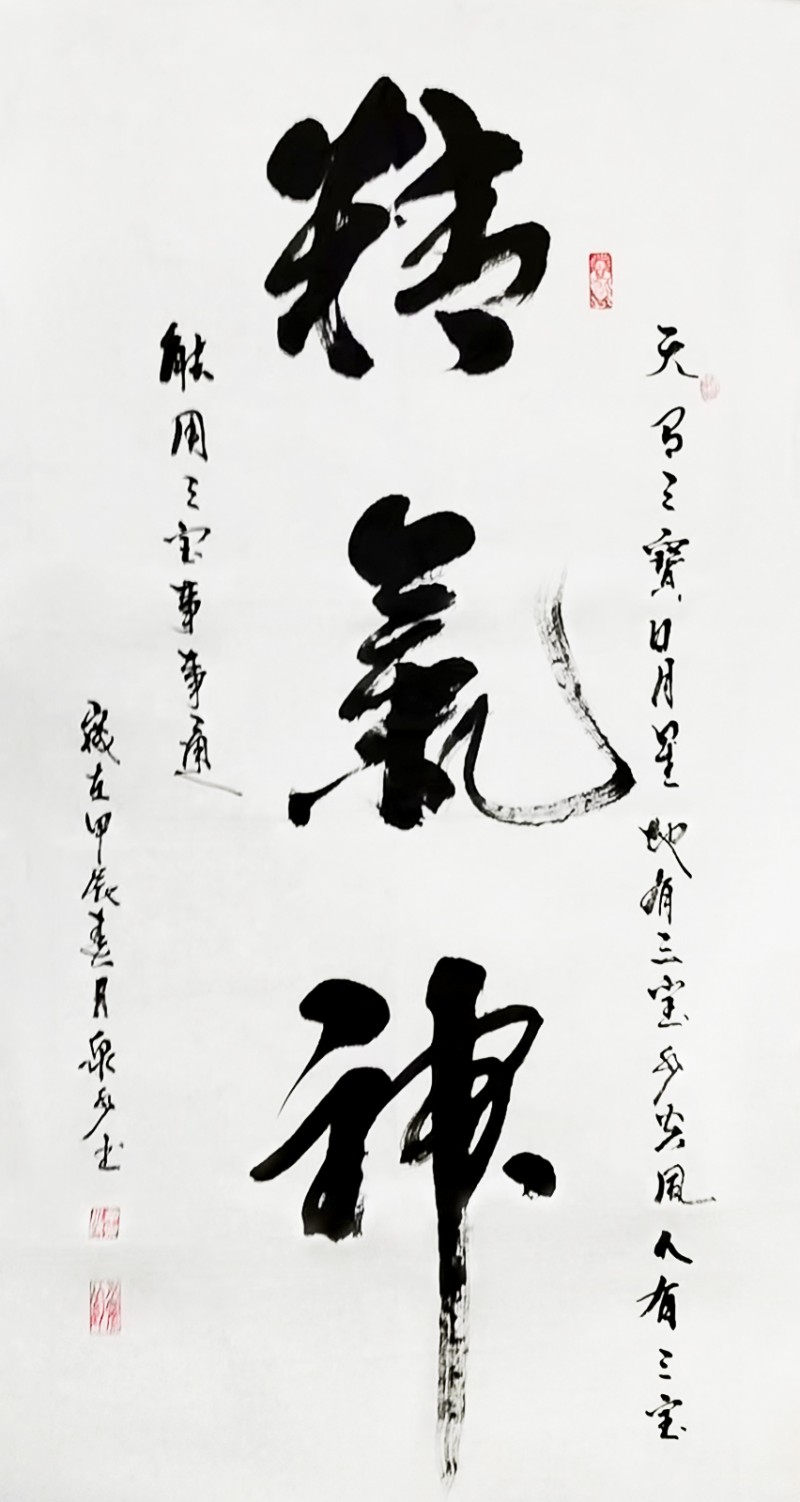 天有三寶日月星地有三宝水火風人有三宝
精氣神
能用三宝事事通
歲在甲辰春月泉水书